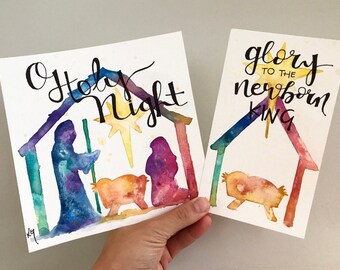 O Holy
Night
glory
TO THE
newborn
KING